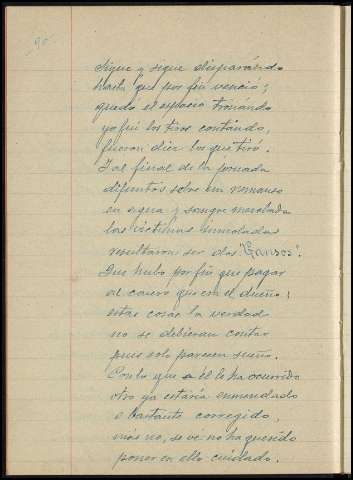 90
Sigue y sigue disparándo
hasta que por fín venció;
quedó el espacio tronándo
yo fuí los tiros contándo,
fueron diez los que tiró.
Y al final de la jornada
difuntos sobre un remanso
en agua y sangre mezclada
las víctimas inmoladas
resultaron ser dos "Gansos".
Que hubo por fín que pagar
al casero que era el dueño;
estas cosas la verdad
no se debieran contar
pues solo parecen sueño.
Con lo que a él le ha ocurrido
otro ya estaría enmendado
o bastante corregido,
más no, se ve no ha querido
poner en ello cuidado.